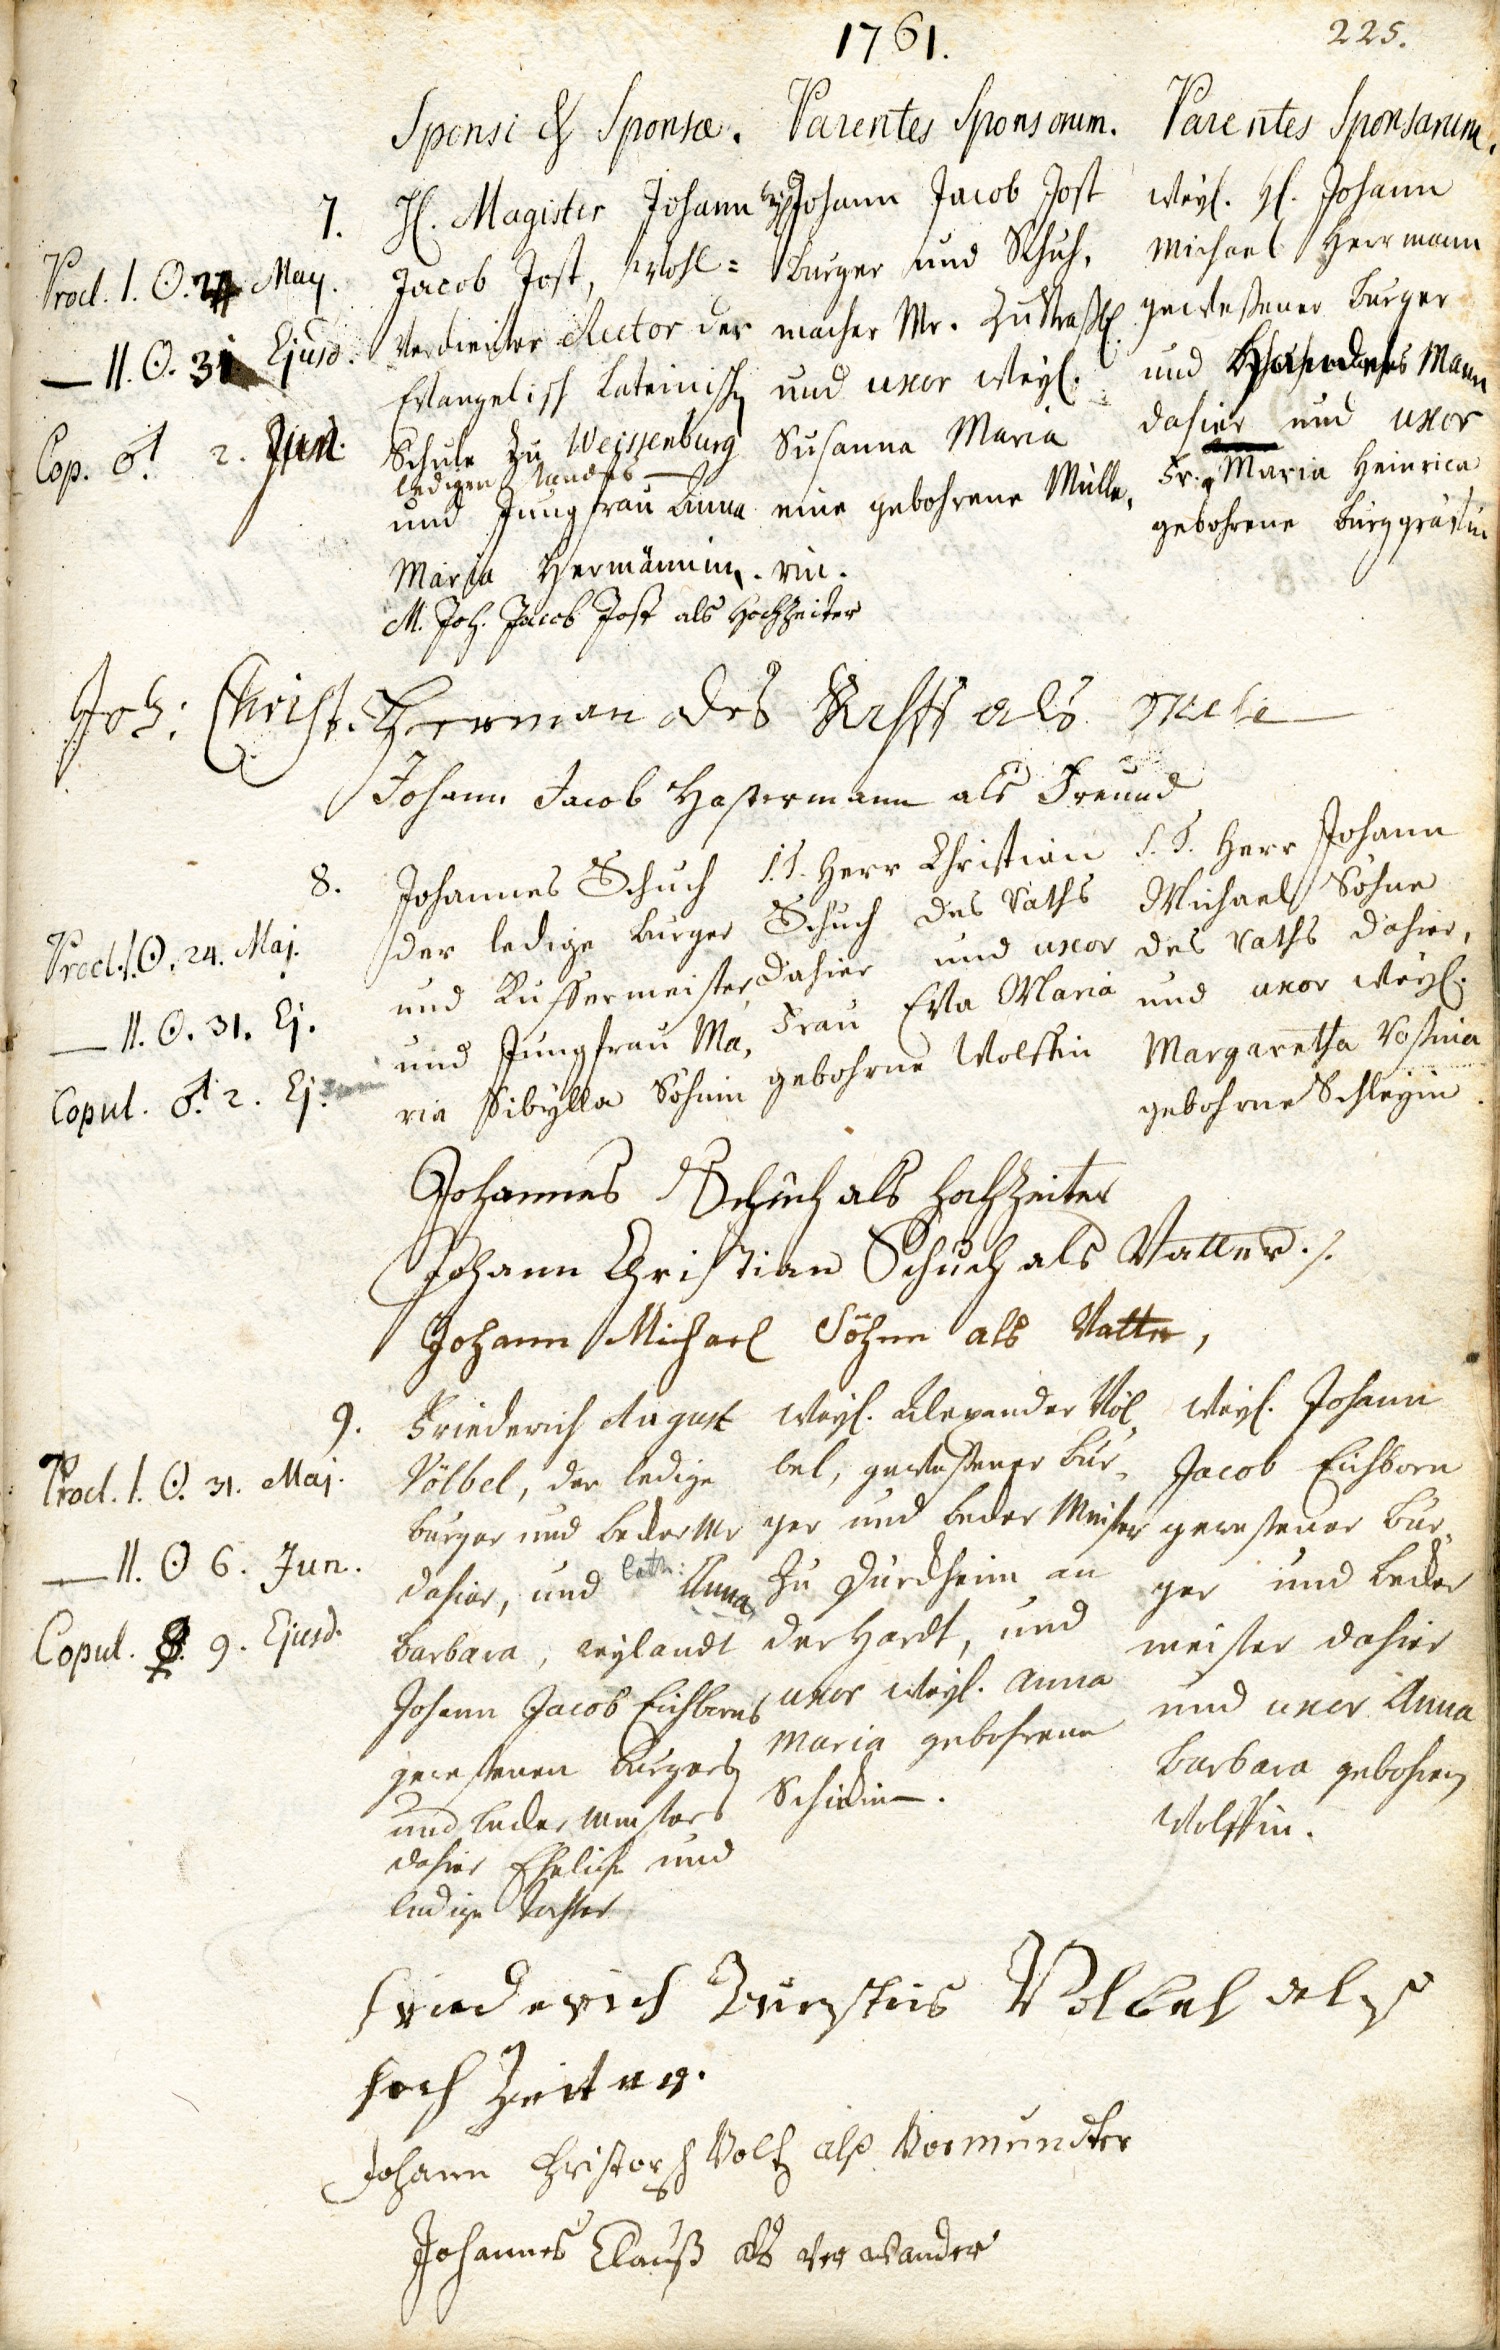 1761.
225.
Sponsi & Sponsæ.
Parentes Sponsorum.
Parentes Sponsarum.
7.
Procl. I. ☉. 24 May.
— II. ☉. 31 Ejusd.
Cop. ♂. 2. Jun.
H. Magister Johann
Jacob Jost, wohl=
verdienter Rector der
Evangelisch Lateinischen
Schule zu Weissenburg
ledigen Standes
und Jungfrau Anna
Maria Hermännin.
Johann Jacob Jost
Burger und Schuh,
macher Mr. zu Straßb.
und uxor weyl.
Susanna Maria
eine gebohrene Mülle,
rin.
weyl. H. Johann
Michael Herrmann
gewesener burger
und Handels Mann
dahier und uxor
Fr. Maria Heinrica
gebohrene burggräfin
M. Joh. Jacob Jost als Hochzeiter
Joh: Christ. Herman des Raths als
Johann Jacob Hastermann als Freund
8.
Procl. I. ☉. 24. Maj.
— II. ☉. 31. Ej.
Copul. ♂. 2. Ej.
Johannes Schuch
der ledige burger
und Kuffermeister,
und Jungfrau Ma,
ria Sibylla Söhnin
S.T. Herr Christian
Schuch des Raths
dahier und uxor
Frau Eva Maria
gebohrne Wolffin
S.T. Herr Johann
Michael Söhne
des Raths dahier,
und uxor weyl.
Margaretha Rosina
gebohrne Schleyin.
Johannes Schuch als Hochzeiter
Johann Christian Schuch als Vatter./.
Johann Michael Söhne als Vatter,
9.
Procl. I. ☉. 31. Maj.
— II. ☉ 6. Jun.
Copul. 9. Ejusd.
Friederich August
Völbel, der ledige
burger und beder Mr
dahier, und Cath: Anna
barbara, weylandt
Johann Jacob Eichborns
gewesenen burgers
und beder Meisters
dahier Ehelich und
ledige Tochter
weyl. Alexander Völ,
bel, gewesener bur,
ger und beder Meister
zu Durckheim an
der Hardt, und
uxor weyl. Anna
Maria gebohrene
Schickin.
weyl. Johann
Jacob Eichborn
gewesener bur,
ger und beder
meister dahier
und uxor Anna
Barbara gebohrene
Wolffin.
friederich Augustus Völbel alß
hoch Zeiter.
Johann Christoph Voltz alß Vormundter
Johannes Clauß als verwander